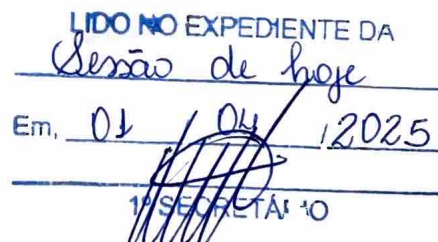 LIDO NO EXPEDIENTE DA
Sessão de hoje
Em, 01 / 04 / 2025
1º SECRETÁRIO